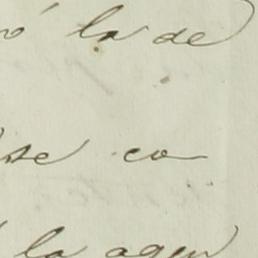 ó la de
se co
la agen